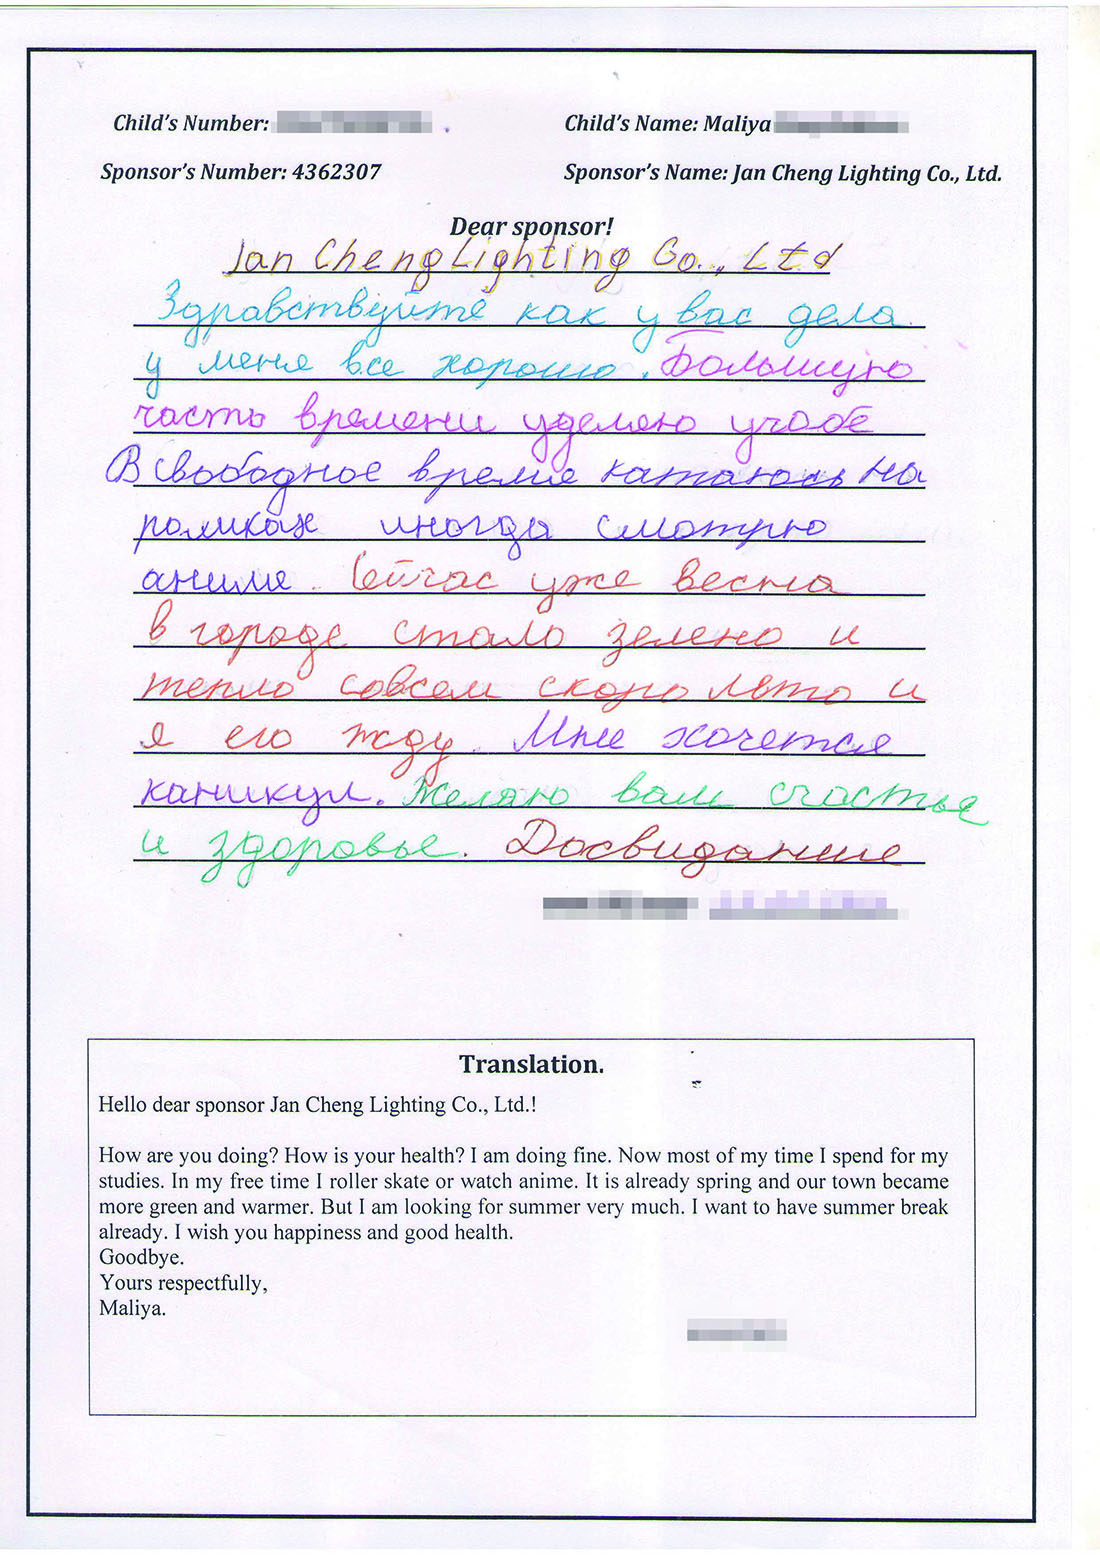 Child's Number:
Child's Name: Maliya
Sponsor's Number: 4362307
Sponsor's Name: Jan Cheng Lighting Co., Ltd.
Dear sponsor!
Jan Cheng Lighting Co., Ltd
Здравствуйте как у вас дела.
у меня все хорошо. Большую
часть времени уделяю учобе
В свободное время катаюсь на
роликах иногда смотрю
аниме. Сейчас уже весна
в городе стало зелено и
тепло совсем скоро лето и
я его жду. Мне хочется
каникул. Желаю вам счастье
и здоровье. Досвидание
Translation.
Hello dear sponsor Jan Cheng Lighting Co., Ltd.!
How are you doing? How is your health? I am doing fine. Now most of my time I spend for my
studies. In my free time I roller skate or watch anime. It is already spring and our town became
more green and warmer. But I am looking for summer very much. I want to have summer break
already. I wish you happiness and good health.
Goodbye.
Yours respectfully,
Maliya.